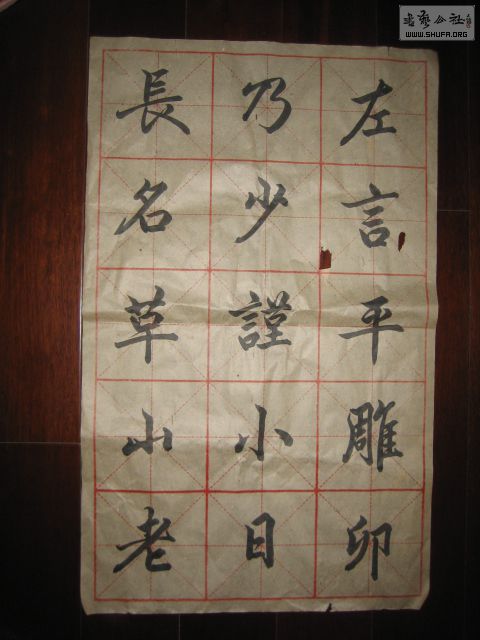 左言平雕卯
乃少謹小日
長名草山老
書藝公社
WWW.SHUFR.ORG